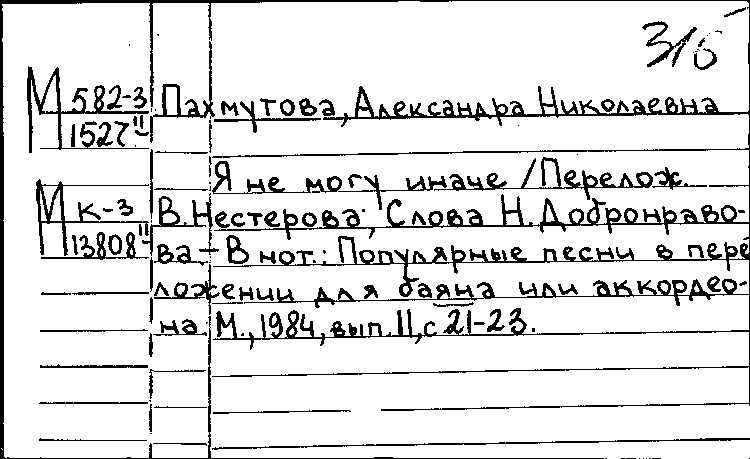 31б
М 582-3 Пахмутова, Александра Николаевна
1527 II
Я не могу иначе / Перелож.
М К-3 В. Нестерова; Слова Н. Добронраво-
13808 II ва. – В нот.: Популярные песни в пере
ложении для баяна или аккордео-
на. М., 1984, вып. 11, с 21-23.